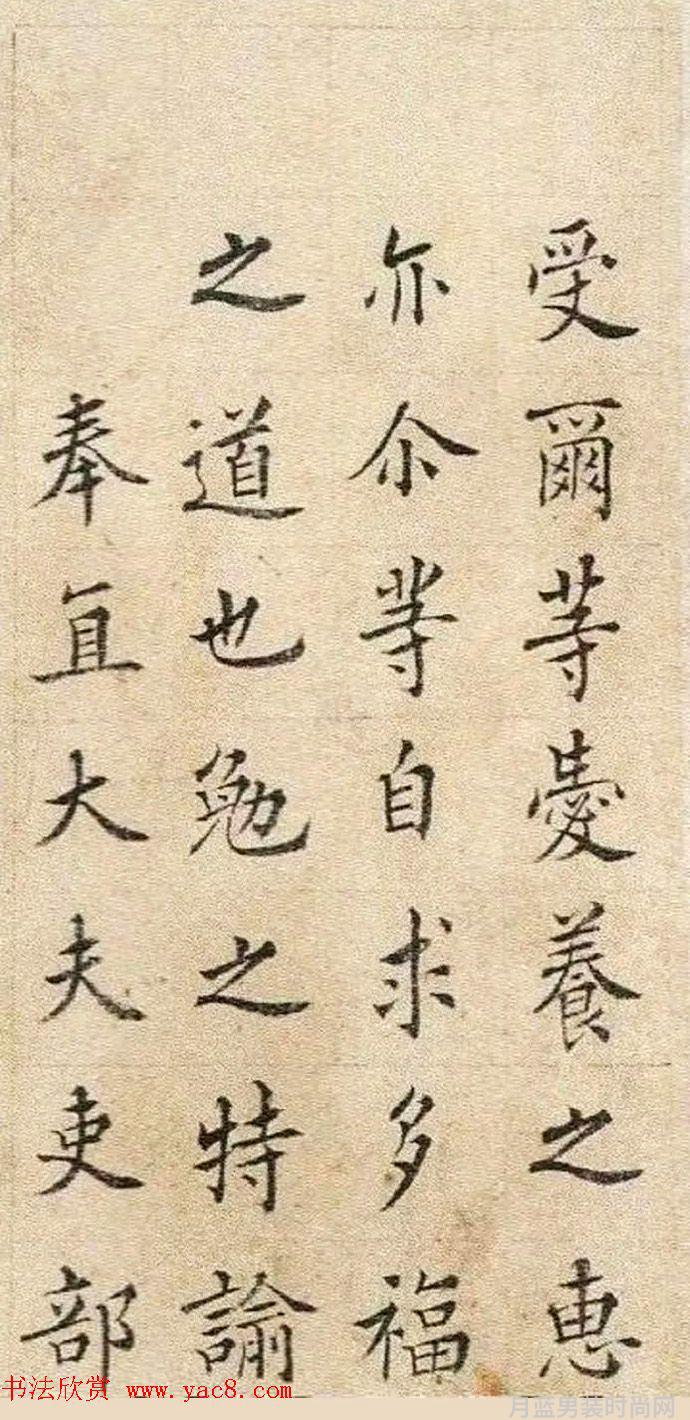 受爾等憂養之惠
亦尒等自求多福
之道也勉之特諭
奉直大夫吏部
书法欣赏 www.yac8.com
月蓝男装时尚网